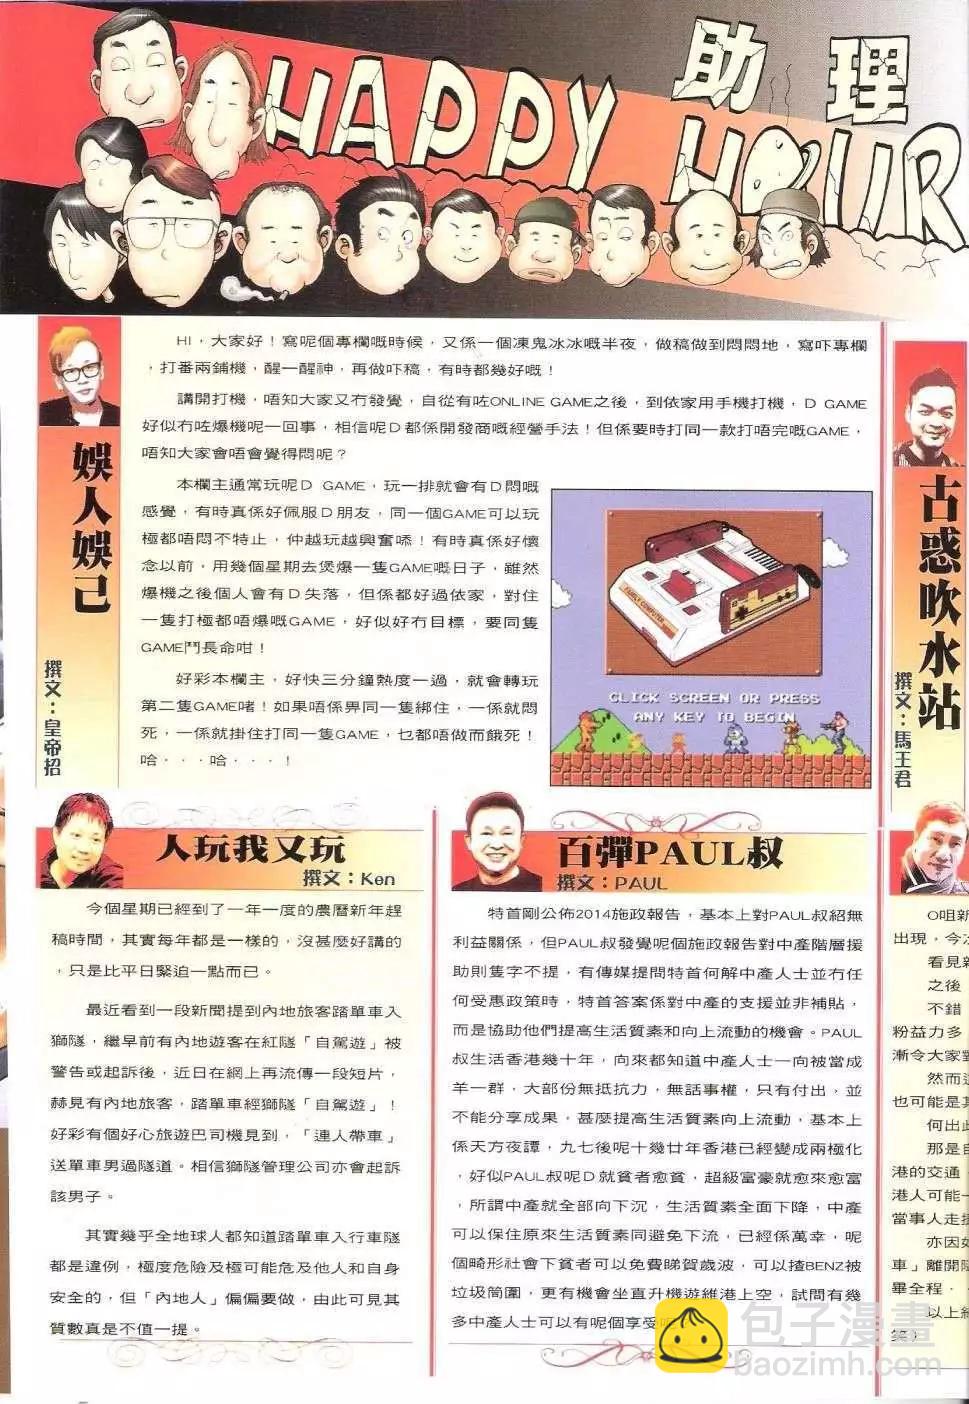 助理
HAPPY HOUR
娛人娛己
撰文：皇帝招
HI，大家好！寫呢個專欄嘅時候，又係一個凍鬼冰冰嘅半夜，做稿做到悶悶地，寫吓專欄
，打番兩鋪機，醒一醒神，再做吓稿，有時都幾好嘅！
講開打機，唔知大家又冇發覺，自從有咗ONLINE GAME之後，到依家用手機打機，D GAME
好似冇咗爆機呢一回事，相信呢D都係開發商嘅經營手法！但係要時打同一款打唔完嘅GAME，
唔知大家會唔會覺得悶呢？
本欄主通常玩呢D GAME，玩一排就會有D悶嘅
感覺，有時真係好佩服D朋友，同一個GAME可以玩
極都唔悶不特止，仲越玩越興奮㖭！有時真係好懷
念以前，用幾個星期去煲爆一隻GAME嘅日子，雖然
爆機之後個人會有D失落，但係都好過依家，對住
一隻打極都唔爆嘅GAME，好似好冇目標，要同隻
GAME鬥長命咁！
好彩本欄主，好快三分鐘熱度一過，就會轉玩
第二隻GAME啫！如果唔係畀同一隻綁住，一係就悶
死，一係就掛住打同一隻GAME，乜都唔做而餓死！
哈．．．哈．．．！
FAMILY COMPUTER
CLICK SCREEN OR PRESS
ANY KEY TO BEGIN
古惑吹水站
撰文：馬王君
人玩我又玩
撰文：Ken
今個星期已經到了一年一度的農曆新年趕
稿時間，其實每年都是一樣的，沒甚麼好講的
，只是比平日緊迫一點而已。
最近看到一段新聞提到內地旅客踏單車入
獅隧，繼早前有內地遊客在紅隧「自駕遊」被
警告或起訴後，近日在網上再流傳一段短片，
赫見有內地旅客，踏單車經獅隧「自駕遊」！
好彩有個好心旅遊巴司機見到，「連人帶車」
送單車男過隧道。相信獅隧管理公司亦會起訴
該男子。
其實幾乎全地球人都知道踏單車入行車隧
都是違例，極度危險及極可能危及他人和自身
安全的，但「內地人」偏偏要做，由此可見其
質數真是不值一提。
百彈PAUL叔
撰文：PAUL
特首剛公佈2014施政報告，基本上對PAUL叔絕無
利益關係，但PAUL叔發覺呢個施政報告對中產階層援
助則隻字不提，有傳媒提問特首何解中產人士並冇任
何受惠政策時，特首答案係對中產的支援並非補貼，
而是協助他們提高生活質素和向上流動的機會。PAUL
叔生活香港幾十年，向來都知道中產人士一向被當成
羊一群，大部份無抵抗力，無話事權，只有付出，並
不能分享成果，甚麼提高生活質素向上流動，基本上
係天方夜譚，九七後呢十幾廿年香港已經變成兩極化
，好似PAUL叔呢D就貧者愈貧，超級富豪就愈來愈富
，所謂中產就全部向下沉，生活質素全面下降，中產
可以保住原來生活質素同避免下流，已經係萬幸，呢
個畸形社會下貧者可以免費睇賀歲波，可以揸BENZ被
垃圾筒圍，更有機會坐直升機遊維港上空，試問有幾
多中產人士可以有呢個享受呢
O咀新
出現，今
看見新
之後
不錯
粉益力多
漸令大家對
然而這
也可能是其
何出此
那是自
港的交通
港人可能一
當事人走
亦因如
車」離開隧
畢全程．
以上
笑！
包子漫畫
baozimh.com